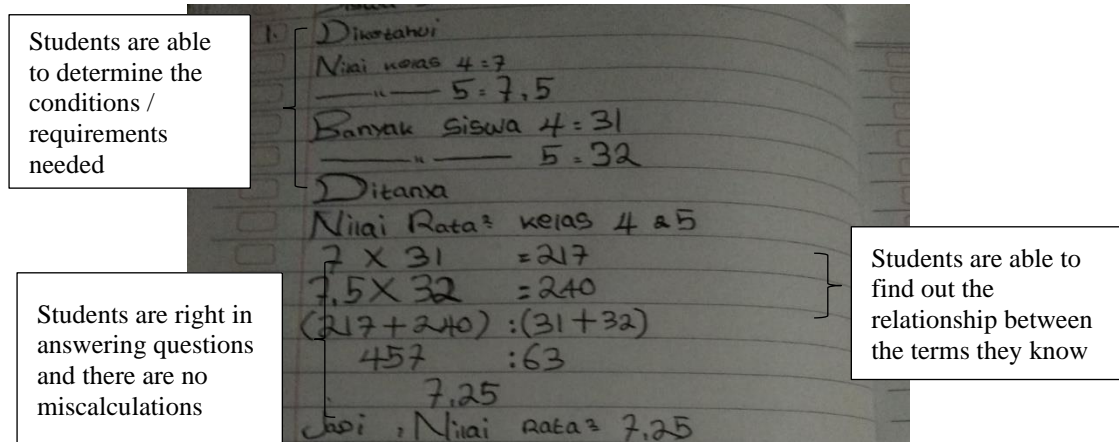 Students are able
to determine the
conditions /
requirements
needed
1. Diketahui
Nilai kelas 4 = 7
—— " —— 5 = 7,5
Banyak siswa 4 = 31
—— " —— 5 = 32
Ditanya
Nilai Rata² kelas 4 & 5
7 X 31 = 217
7,5 X 32 = 240
(217 + 240) : (31 + 32)
457 : 63
7,25
Jadi, Nilai Rata² 7,25
Students are right in
answering questions
and there are no
miscalculations
Students are able to
find out the
relationship between
the terms they know